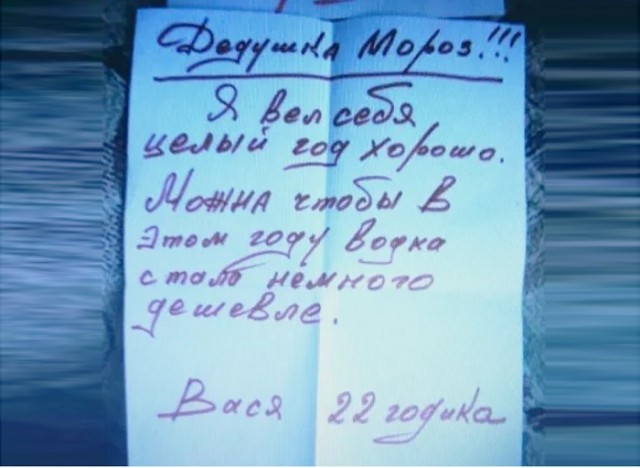 Дедушка Мороз!!!
Я вел себя
целый год хорошо.
Можна чтобы в
этом году водка
стала немного
дешевле.
Вася 22 годика